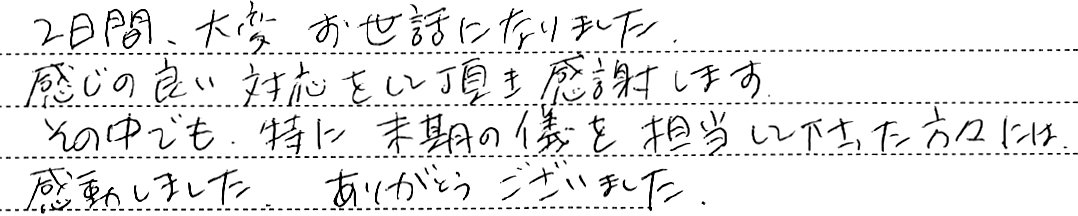 2日間、大変 お世話になりました.
感じの良い 対応をして頂き 感謝します.
その中でも. 特に 末期の儀を 担当して下さった方々には.
感動しました. ありがとうございました.